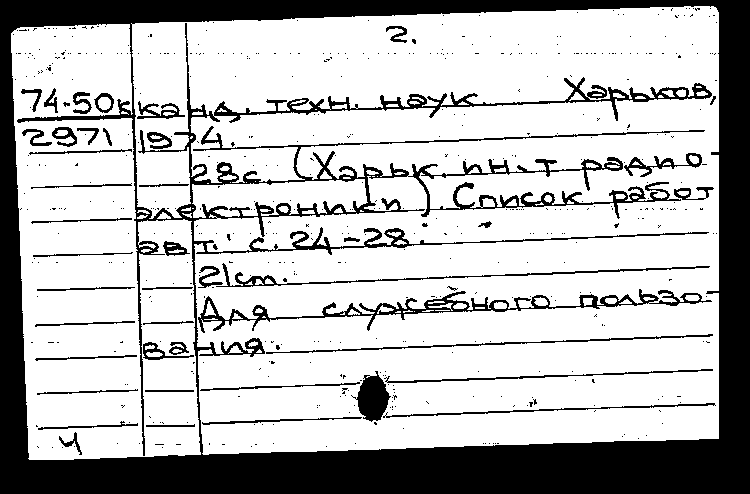 2.
74-50к канд. техн. наук. Харьков,
2971 1974.
28с. (Харьк. ин-т радио-
электроники). Список работ
авт.: с. 24-28.
21cm.
Для служебного пользо-
вания.
4